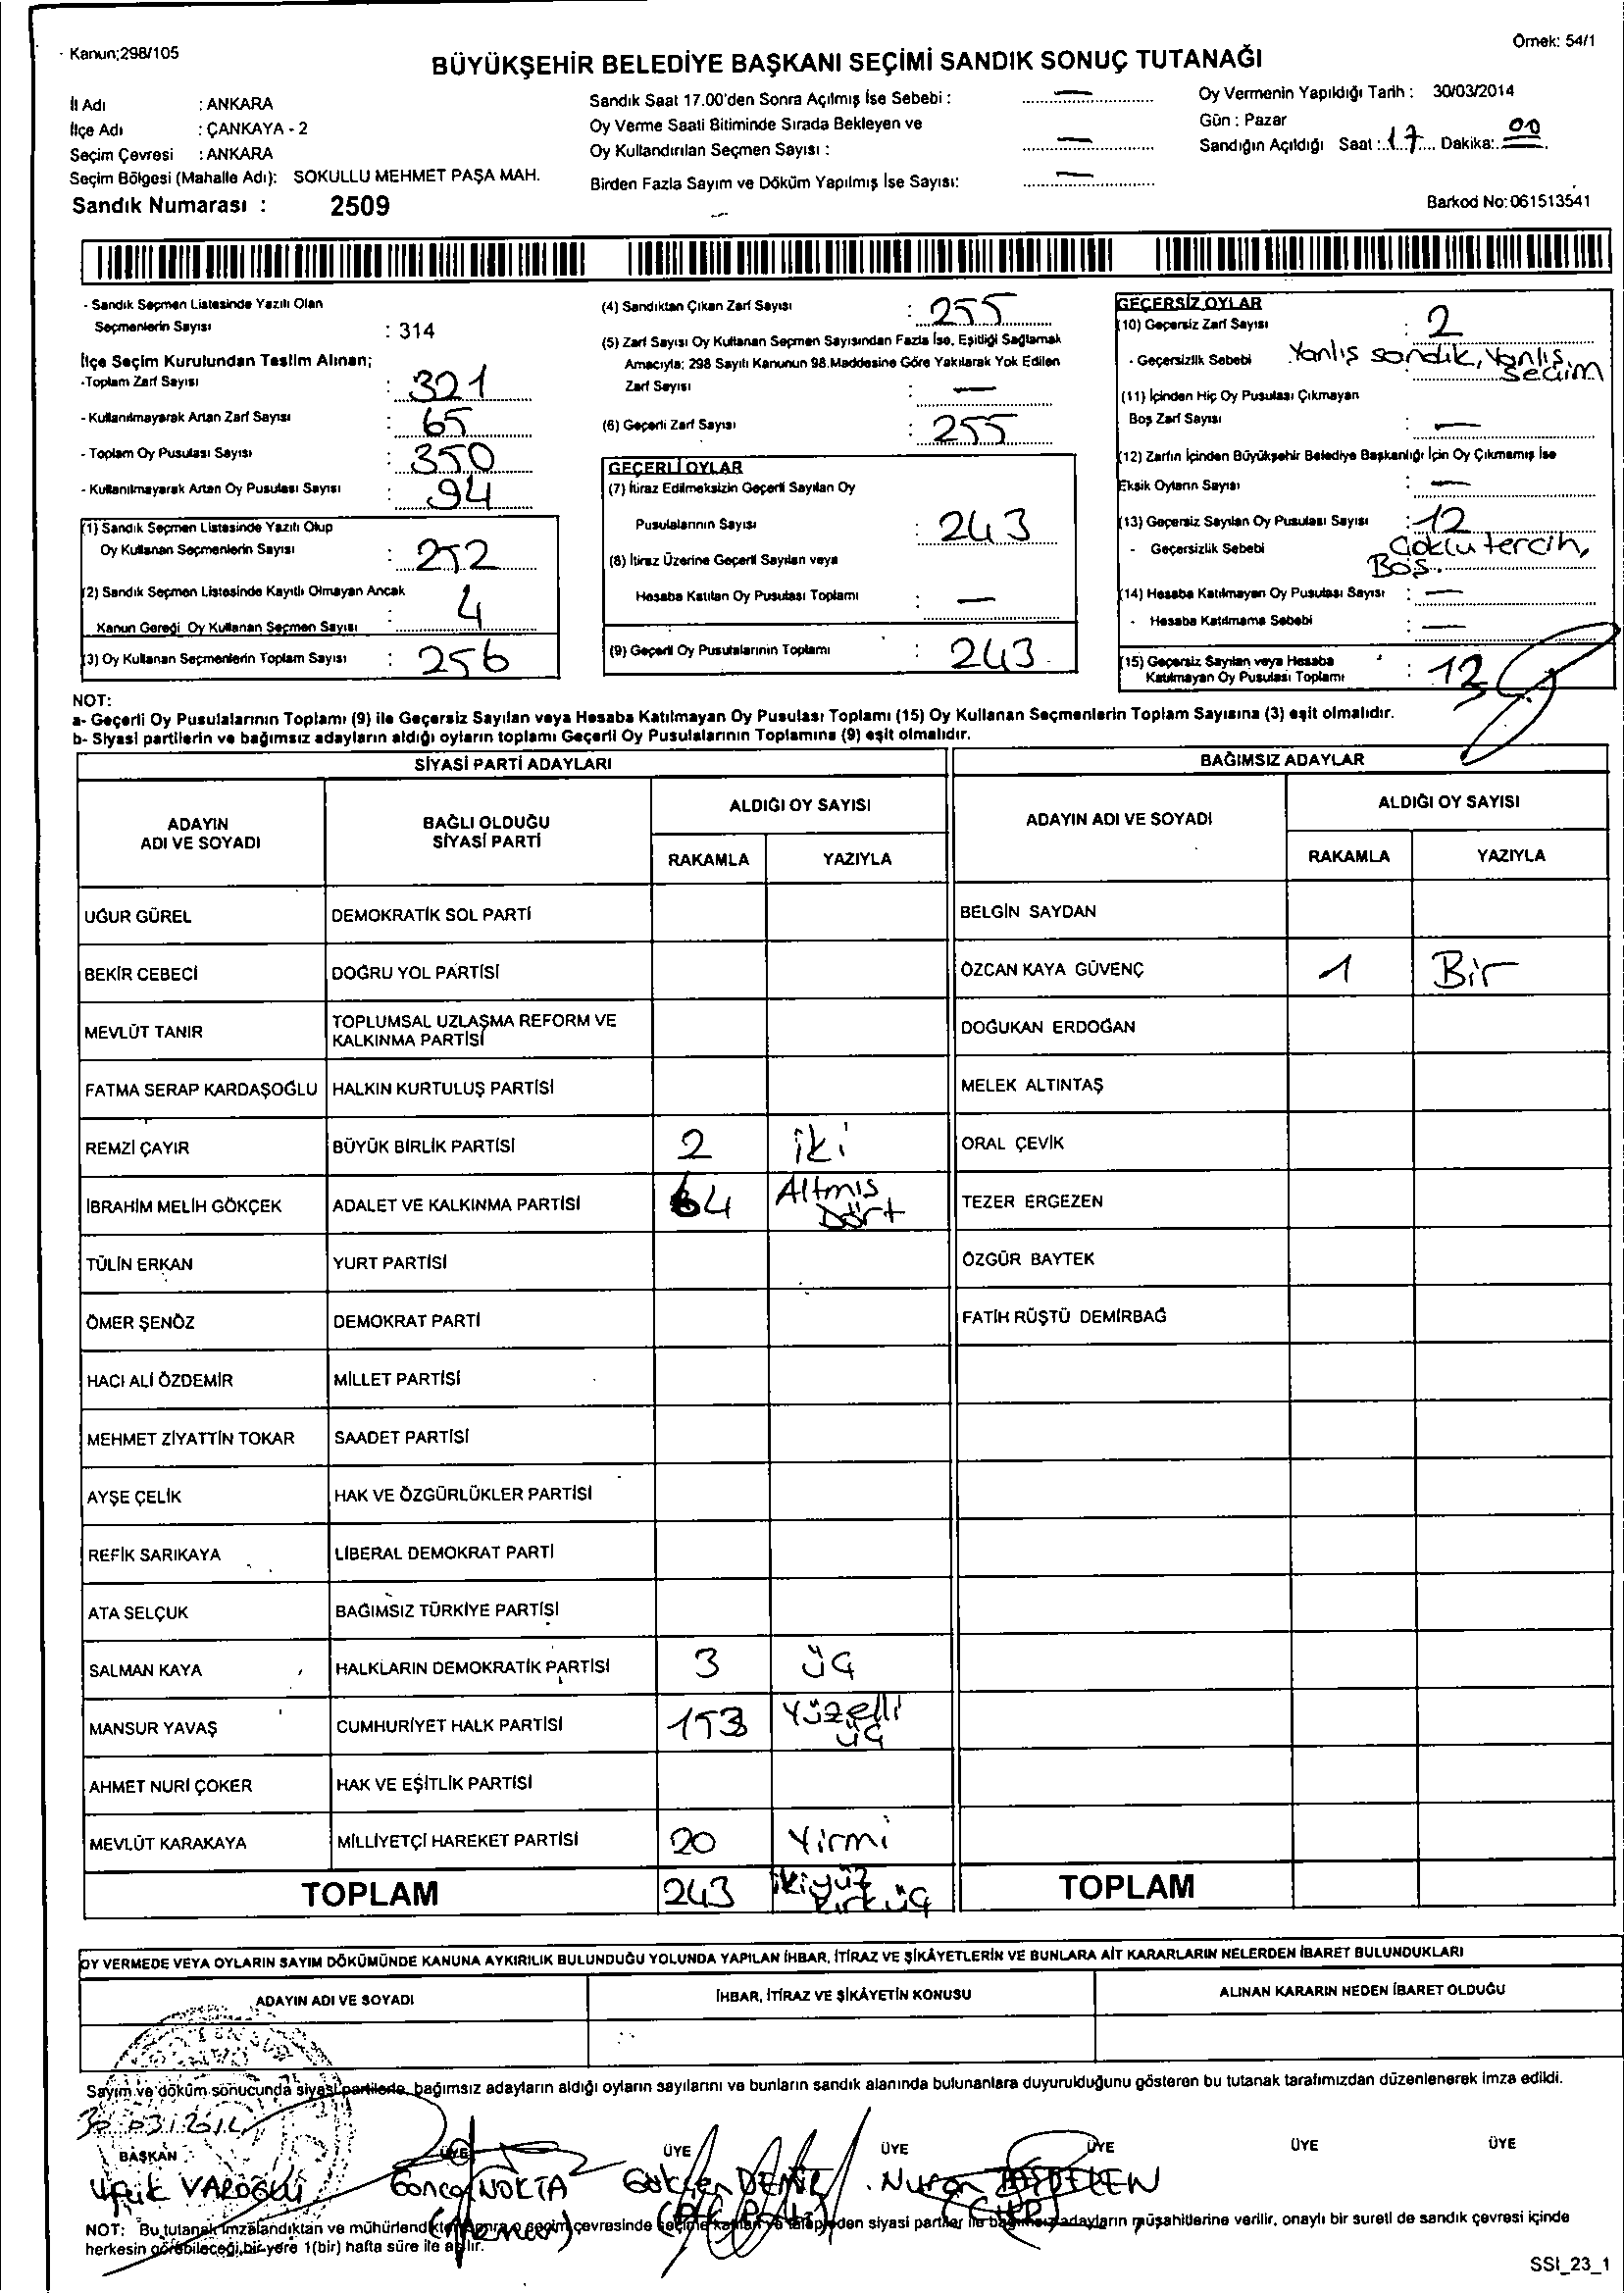 Kanun;298/105
Örnek: 54/1
BÜYÜKŞEHİR BELEDİYE BAŞKANI SEÇİMİ SANDIK SONUÇ TUTANAĞI
İl Adı : ANKARA
İlçe Adı : ÇANKAYA - 2
Seçim Çevresi : ANKARA
Seçim Bölgesi (Mahalle Adı): SOKULLU MEHMET PAŞA MAH.
Sandık Numarası : 2509
Sandık Saat 17.00'den Sonra Açılmış İse Sebebi : —
Oy Verme Saati Bitiminde Sırada Bekleyen ve
Oy Kullandırılan Seçmen Sayısı : —
Birden Fazla Sayım ve Döküm Yapılmış İse Sayısı: —
Oy Vermenin Yapıldığı Tarih : 30/03/2014
Gün : Pazar
Sandığın Açıldığı Saat : 17 Dakika: 00
Barkod No: 061513541
- Sandık Seçmen Listesinde Yazılı Olan
Seçmenlerin Sayısı : 314
İlçe Seçim Kurulundan Teslim Alınan;
-Toplam Zarf Sayısı : 321
- Kullanılmayarak Artan Zarf Sayısı : 65
- Toplam Oy Pusulası Sayısı : 350
- Kullanılmayarak Artan Oy Pusulası Sayısı : 94
(1) Sandık Seçmen Listesinde Yazılı Olup
Oy Kullanan Seçmenlerin Sayısı : 252
(2) Sandık Seçmen Listesinde Kayıtlı Olmayan Ancak
Kanun Gereği Oy Kullanan Seçmen Sayısı : 4
(3) Oy Kullanan Seçmenlerin Toplam Sayısı : 256
(4) Sandıktan Çıkan Zarf Sayısı : 255
(5) Zarf Sayısı Oy Kullanan Seçmen Sayısından Fazla İse, Eşitliği Sağlamak
Amacıyla; 298 Sayılı Kanunun 98.Maddesine Göre Yakılarak Yok Edilen
Zarf Sayısı : —
(6) Geçerli Zarf Sayısı : 255
GEÇERLİ OYLAR
(7) İtiraz Edilmeksizin Geçerli Sayılan Oy
Pusulalarının Sayısı : 243
(8) İtiraz Üzerine Geçerli Sayılan veya
Hesaba Katılan Oy Pusulası Toplamı : —
(9) Geçerli Oy Pusulalarının Toplamı : 243
GEÇERSİZ OYLAR
(10) Geçersiz Zarf Sayısı : 2
- Geçersizlik Sebebi Yanlış sandık, Yanlış
Seçim
(11) İçinden Hiç Oy Pusulası Çıkmayan
Boş Zarf Sayısı : —
(12) Zarfın İçinden Büyükşehir Belediye Başkanlığı İçin Oy Çıkmamış İse
Eksik Oyların Sayısı : —
(13) Geçersiz Sayılan Oy Pusulası Sayısı : 12
- Geçersizlik Sebebi Çoklu tercih,
Boş.
(14) Hesaba Katılmayan Oy Pusulası Sayısı : —
- Hesaba Katılmama Sebebi : —
(15) Geçersiz Sayılan veya Hesaba
Katılmayan Oy Pusulası Toplamı :
NOT:
a- Geçerli Oy Pusulalarının Toplamı (9) ile Geçersiz Sayılan veya Hesaba Katılmayan Oy Pusulası Toplamı (15) Oy Kullanan Seçmenlerin Toplam Sayısına (3) eşit olmalıdır.
b- Siyasi partilerin ve bağımsız adayların aldığı oyların toplamı Geçerli Oy Pusulalarının Toplamına (9) eşit olmalıdır.
SİYASİ PARTİ ADAYLARI
BAĞIMSIZ ADAYLAR
ADAYIN
ADI VE SOYADI
BAĞLI OLDUĞU
SİYASİ PARTİ
ALDIĞI OY SAYISI
RAKAMLA YAZIYLA
ADAYIN ADI VE SOYADI
ALDIĞI OY SAYISI
RAKAMLA YAZIYLA
UĞUR GÜREL DEMOKRATİK SOL PARTİ BELGİN SAYDAN
BEKİR CEBECİ DOĞRU YOL PARTİSİ ÖZCAN KAYA GÜVENÇ 1 Bir
MEVLÜT TANIR TOPLUMSAL UZLAŞMA REFORM VE
KALKINMA PARTİSİ DOĞUKAN ERDOĞAN
FATMA SERAP KARDAŞOĞLU HALKIN KURTULUŞ PARTİSİ MELEK ALTINTAŞ
REMZİ ÇAYIR BÜYÜK BİRLİK PARTİSİ 2 iki ORAL ÇEVİK
İBRAHİM MELİH GÖKÇEK ADALET VE KALKINMA PARTİSİ 64 Altmış
Dört TEZER ERGEZEN
TÜLİN ERKAN YURT PARTİSİ ÖZGÜR BAYTEK
ÖMER ŞENÖZ DEMOKRAT PARTİ FATİH RÜŞTÜ DEMİRBAĞ
HACI ALİ ÖZDEMİR MİLLET PARTİSİ
MEHMET ZİYATTİN TOKAR SAADET PARTİSİ
AYŞE ÇELİK HAK VE ÖZGÜRLÜKLER PARTİSİ
REFİK SARIKAYA LİBERAL DEMOKRAT PARTİ
ATA SELÇUK BAĞIMSIZ TÜRKİYE PARTİSİ
SALMAN KAYA HALKLARIN DEMOKRATİK PARTİSİ 3 üç
MANSUR YAVAŞ CUMHURİYET HALK PARTİSİ 153 Yüzelli
üç
AHMET NURİ ÇOKER HAK VE EŞİTLİK PARTİSİ
MEVLÜT KARAKAYA MİLLİYETÇİ HAREKET PARTİSİ 20 Yirmi
TOPLAM 243 ikiyüz
kırküç TOPLAM
OY VERMEDE VEYA OYLARIN SAYIM DÖKÜMÜNDE KANUNA AYKIRILIK BULUNDUĞU YOLUNDA YAPILAN İHBAR, İTİRAZ VE ŞİKÂYETLERİN VE BUNLARA AİT KARARLARIN NELERDEN İBARET BULUNDUKLARI
ADAYIN ADI VE SOYADI İHBAR, İTİRAZ VE ŞİKÂYETİN KONUSU ALINAN KARARIN NEDEN İBARET OLDUĞU
Sayım ve döküm sonucunda siyasi partilerle, bağımsız adayların aldığı oyların sayılarını ve bunların sandık alanında bulunanlara duyurulduğunu gösteren bu tutanak tarafımızdan düzenlenerek imza edildi.
30.03.2014
BAŞKAN ÜYE ÜYE ÜYE ÜYE ÜYE ÜYE
Ufuk VAROĞLU Gonca NOKTA Gökçen DEMİR Nuran
(Memur) (CHP)
NOT: Bu tutanak imzalandıktan ve mühürlendikten sonra o seçim çevresinde seçime katılan ve talep eden siyasi partiler ile bağımsız adayların müşahitlerine verilir, onaylı bir sureti de sandık çevresi içinde
herkesin görebileceği bir yere 1(bir) hafta süre ile asılır.
SSI_23_1